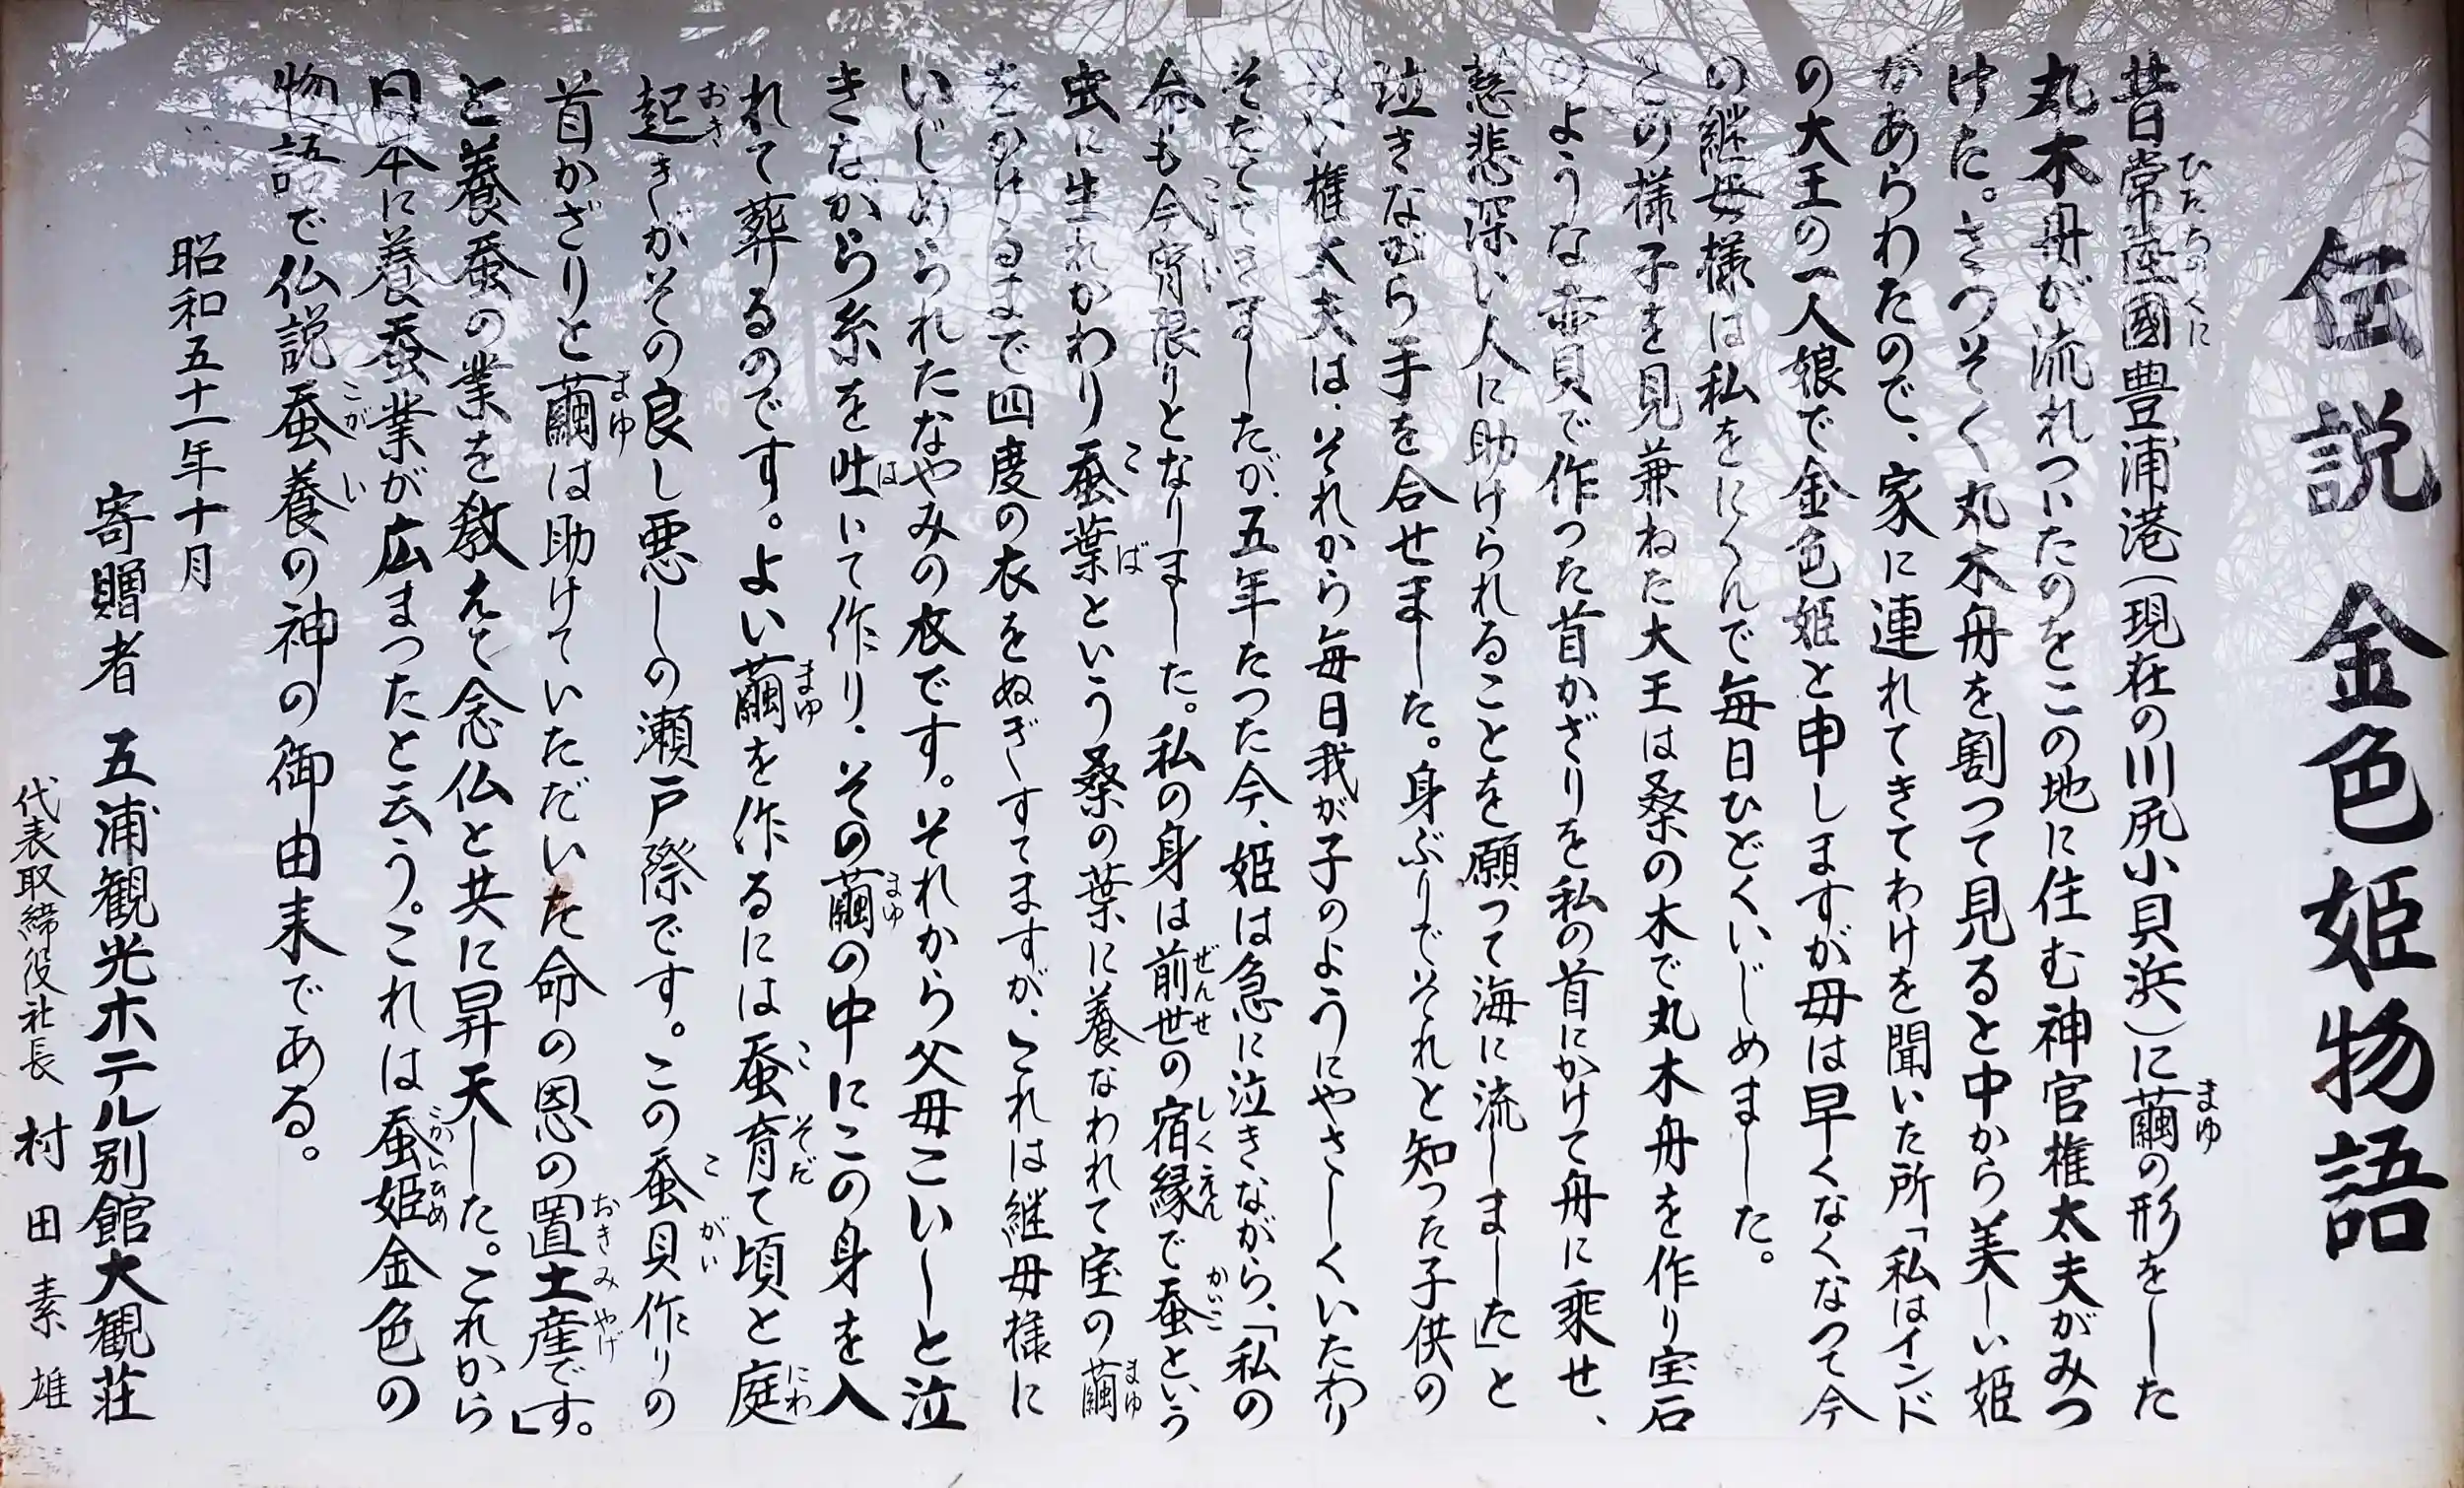 伝説 金色姫物語
昔常陸國豊浦港(現在の川尻小貝浜)に繭の形をした
丸木舟が流れついたのをこの地に住む神官権太夫がみつ
けた。さつそく丸木舟を割つて見ると中から美しい姫
があらわたので、家に連れてきてわけを聞いた所「私はインド
の大王の一人娘で金色姫と申しますが母は早くなくなつて今
の継母様は私をにくんで毎日ひどくいじめました。
この様子を見兼ねた大王は桑の木で丸木舟を作り宝石
のような赤貝で作つた首かざりを私の首にかけて舟に乘せ、
慈悲深い人に助けられることを願つて海に流しました」と
泣きながら手を合せました。身ぶりでそれと知つた子供の
ない権太夫は、それから毎日我が子のようにやさしくいたわり
そだてゝきましたが、五年たつた今、姫は急に泣きながら、「私の
命も今宵限りとなりました。私の身は前世の宿縁で蚕という
虫に生れかわり蚕葉という桑の葉に養なわれて宝の繭
をかけるまで四度の衣をぬぎすてますが、これは継母様に
いじめられたなやみの衣です。それから父母こいしと泣
きながら糸を吐いて作り、その繭の中にこの身を入
れて葬るのです。よい繭を作るには蚕育て頃と庭
起きがその良し悪しの瀬戸際です。この蚕貝作りの
首かざりと繭は助けていただいた命の恩の置土産です。」
と養蚕の業を教えて念仏と共に昇天した。これから
日本に養蚕業が広まつたと云う。これは蚕姫金色の
物語で仏説蚕養の神の御由来である。
昭和五十一年十月
寄贈者 五浦観光ホテル別館大観荘
代表取締役社長 村田素雄